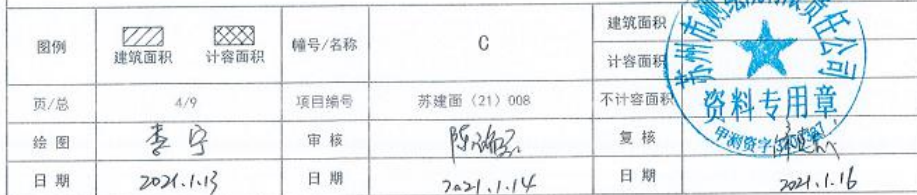 图例 建筑面积 计容面积 幢号/名称 C 建筑面积
计容面积
页/总 4/9 项目编号 苏建面（21）008 不计容面积
绘 图 李宁 审 核 复 核
日 期 2021.1.13 日 期 2021.1.14 日 期 2021.1.16
苏州市测绘院有限责任公司
资料专用章
甲测资字